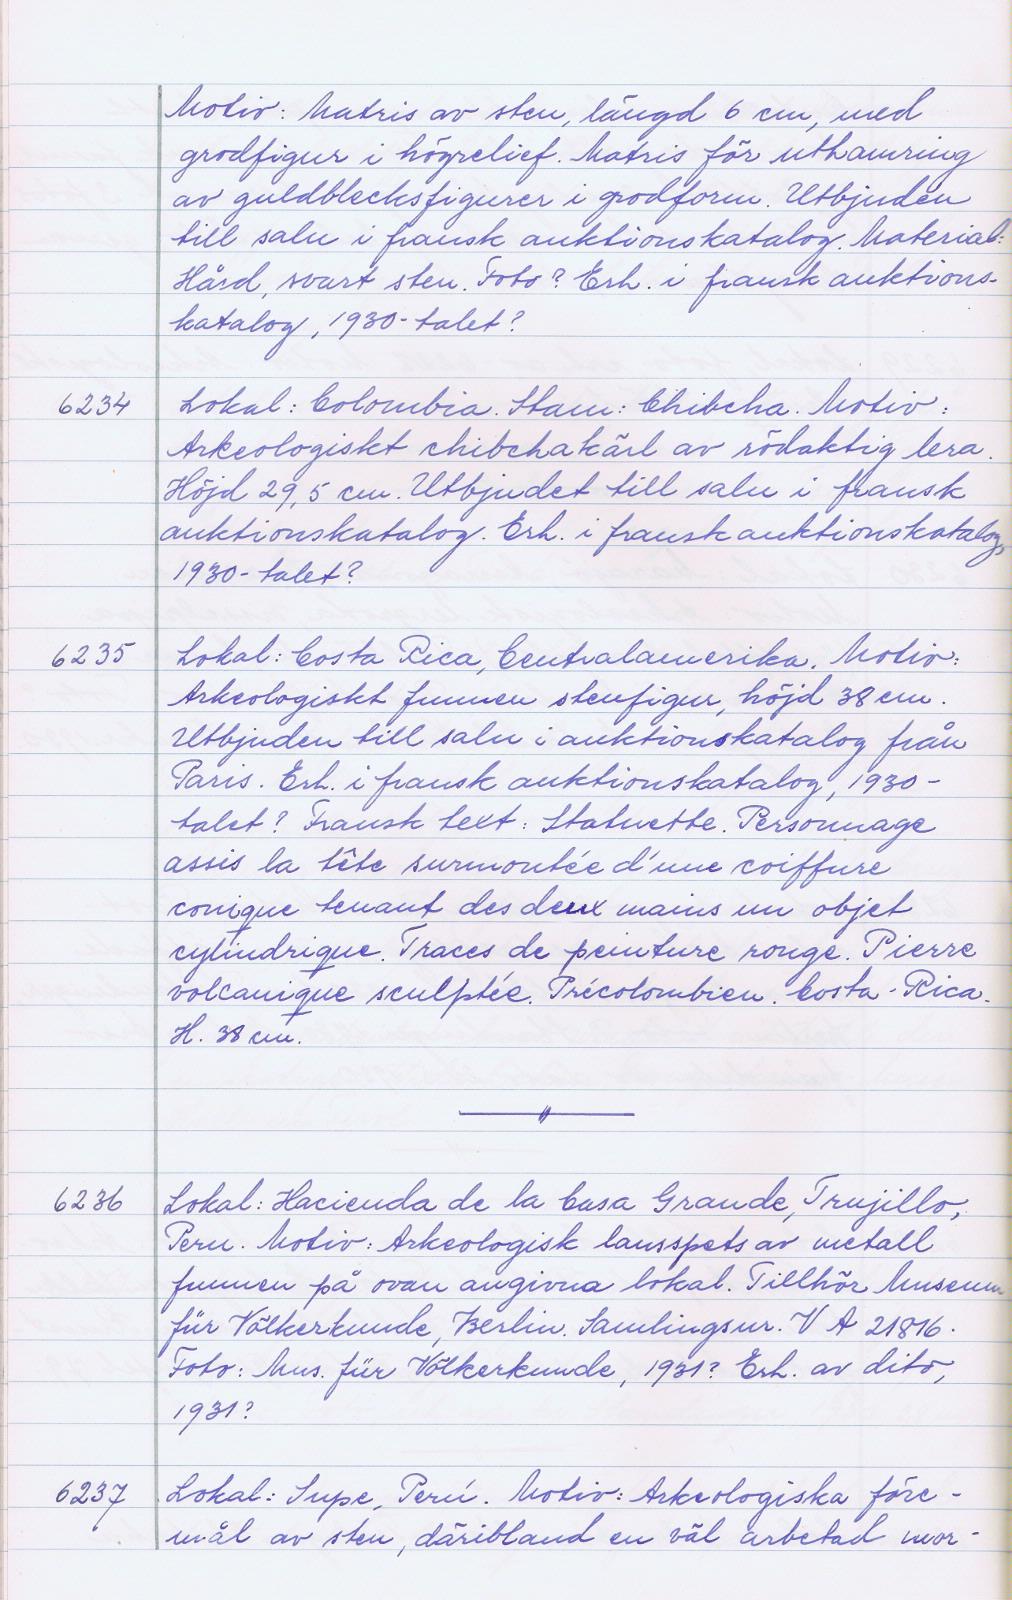 Motiv: Matris av sten, längd 6 cm, med
grodfigur i högrelief. Matris för uthamring
av guldblecksfigurer i grodform. Utbjuden
till salu i fransk auktionskatalog. Material:
Hård, svart sten. Foto? Erh. i fransk auktions-
katalog, 1930-talet?
6234 Lokal: Colombia. Stam: Chibcha. Motiv:
Arkeologiskt chibchakärl av rödaktig lera.
Höjd 29,5 cm. Utbjudet till salu i fransk
auktionskatalog. Erh. i fransk auktionskatalog,
1930-talet?
6235 Lokal: Costa Rica, Centralamerika. Motiv:
Arkeologiskt funnen stenfigur, höjd 38 cm.
Utbjuden till salu i auktionskatalog från
Paris. Erh. i fransk auktionskatalog, 1930-
talet? Fransk text: Statuette. Personnage
assis la tête surmontée d'une coiffure
conique tenant des deux mains un objet
cylindrique. Traces de peinture rouge. Pierre
volcanique sculptée. Précolombien. Costa-Rica.
H. 38 cm.
6236 Lokal: Hacienda de la Casa Grande, Trujillo,
Peru. Motiv: Arkeologisk lansspets av metall
funnen på ovan angivna lokal. Tillhör Museum
für Völkerkunde, Berlin. Samlingsnr. V A 21816.
Foto: Mus. für Völkerkunde, 1931? Erh. av dito,
1931?
6237 Lokal: Supe, Perú. Motiv: Arkeologiska före-
mål av sten, däribland en väl arbetad mor-